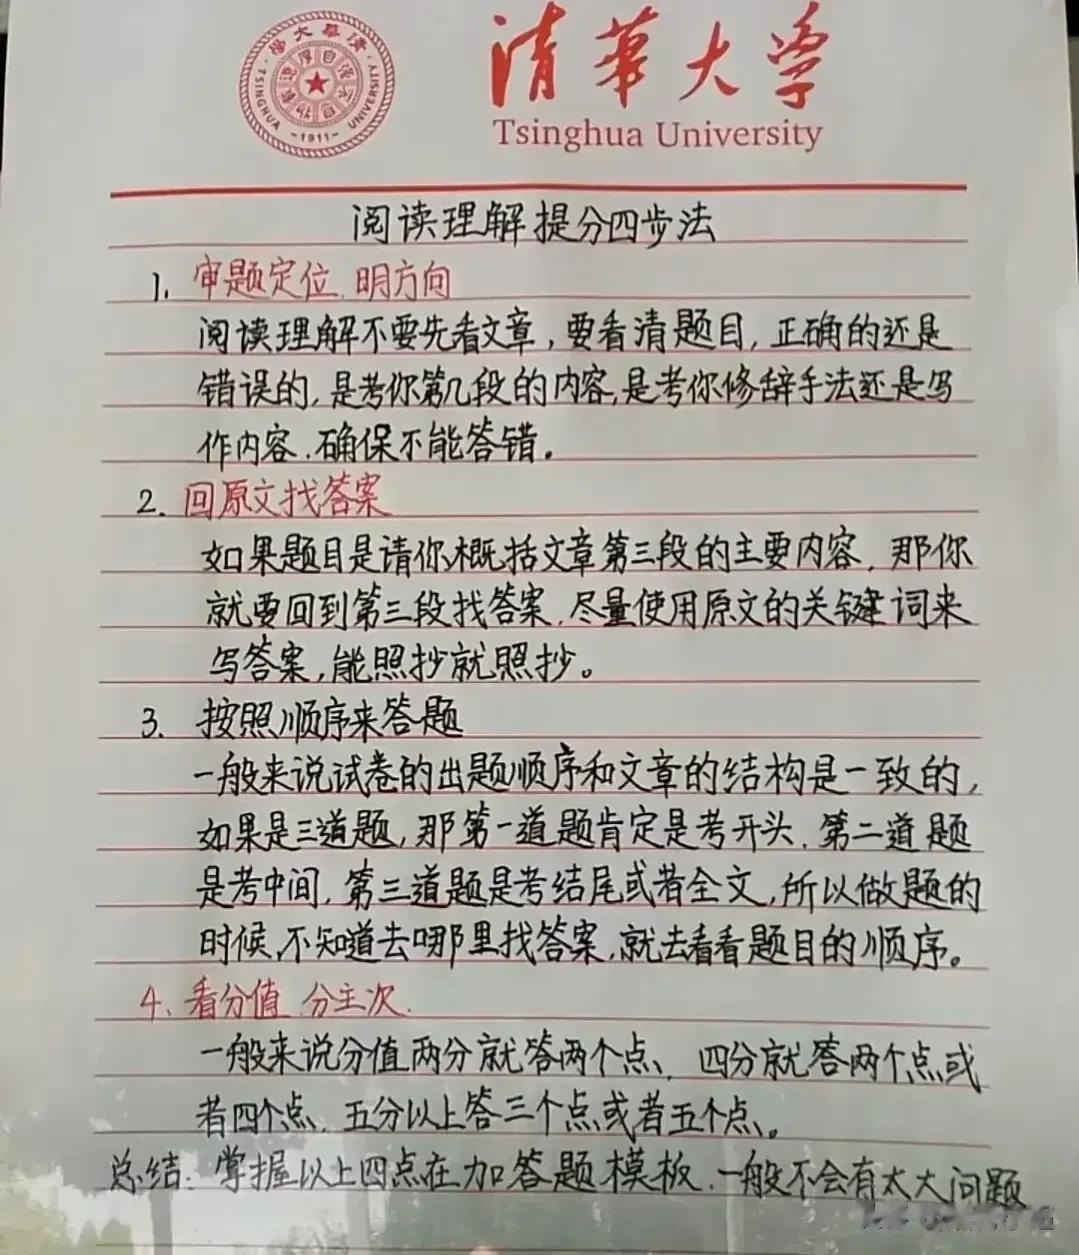 清華大學
Tsinghua University
TSINGHUA UNIVERSITY
-1911-
阅读理解提分四步法
1. 审题定位、明方向
阅读理解不要先看文章，要看清题目，正确的还是
错误的，是考你第几段的内容，是考你修辞手法还是写
作内容，确保不能答错。
2. 回原文找答案
如果题目是请你概括文章第三段的主要内容，那你
就要回到第三段找答案，尽量使用原文的关键词来
写答案，能照抄就照抄。
3. 按照顺序来答题
一般来说试卷的出题顺序和文章的结构是一致的，
如果是三道题，那第一道题肯定是考开头，第二道题
是考中间，第三道题是考结尾或者全文，所以做题的
时候，不知道去哪里找答案，就去看看题目的顺序。
4、看分值、分主次.
一般来说分值两分就答两个点、四分就答两个点或
者四个点、五分以上答三个点或者五个点。
总结：掌握以上四点在加答题模板，一般不会有太大问题